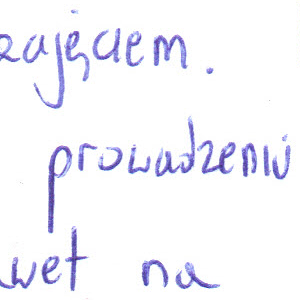 zajęciem.
prowadzeniu
awet na